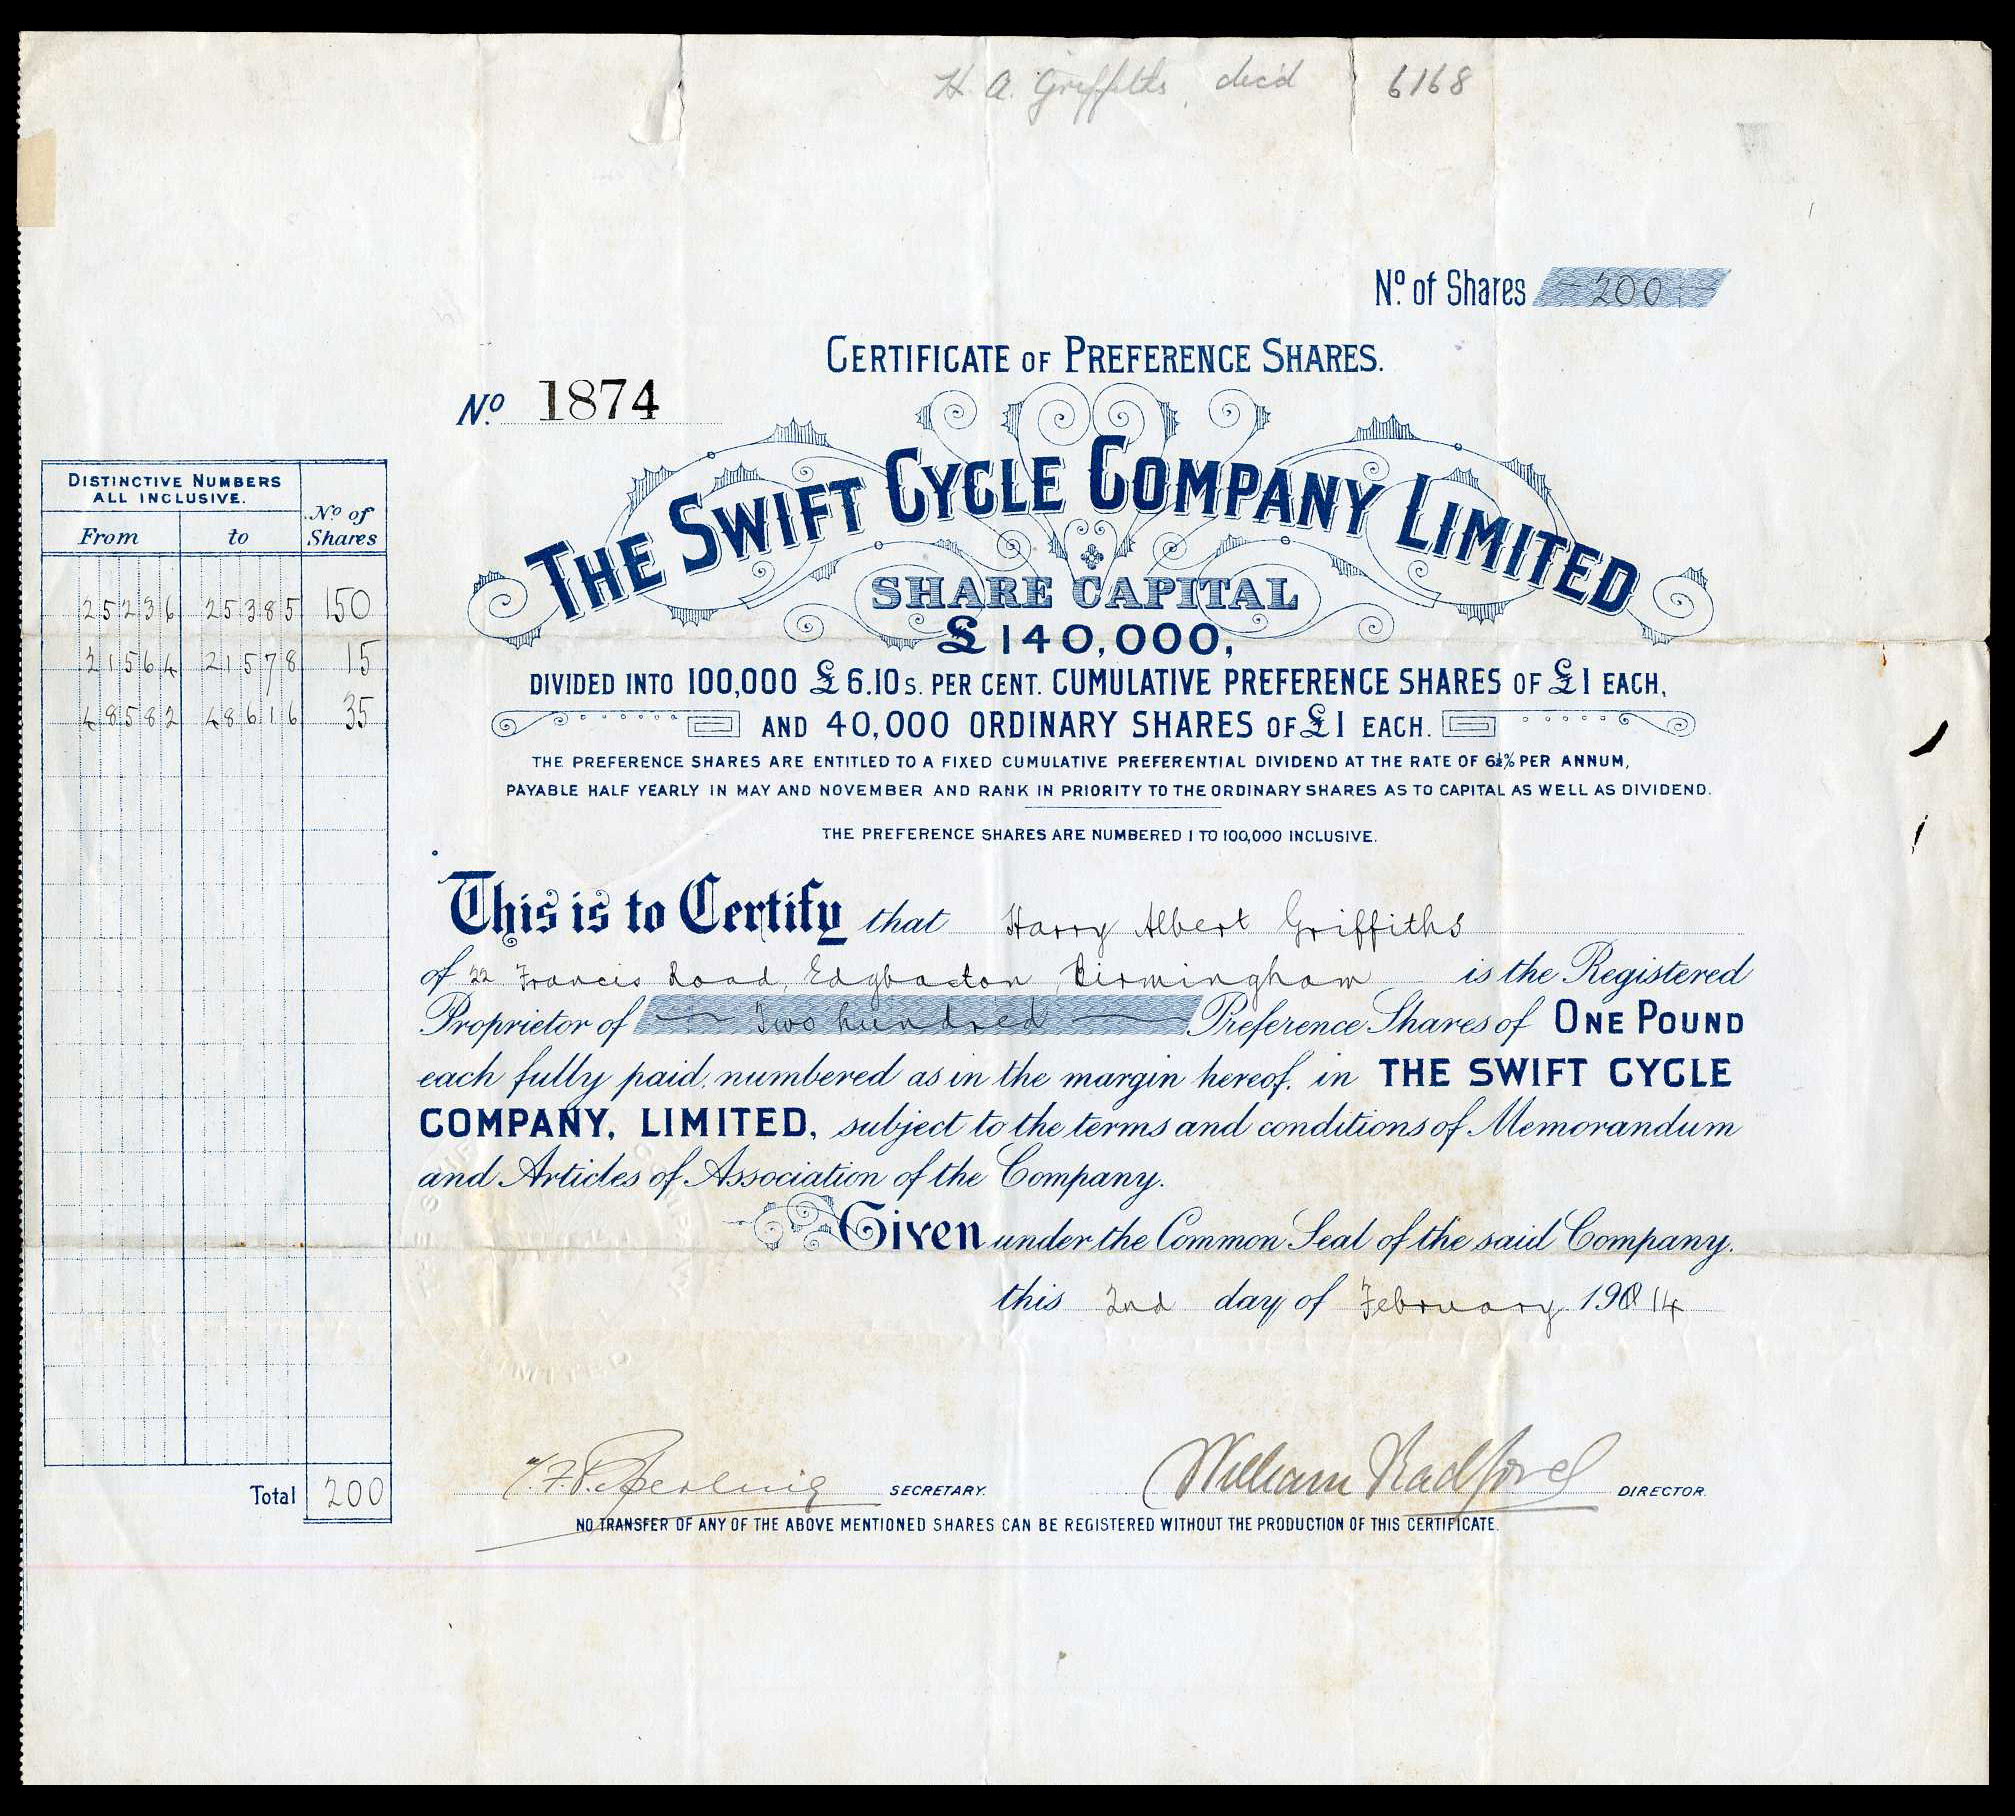 H. A. Griffiths, dec'd 6168
No. of Shares 200
CERTIFICATE OF PREFERENCE SHARES.
No. 1874
THE SWIFT CYCLE COMPANY LIMITED
SHARE CAPITAL
£140,000,
DIVIDED INTO 100,000 £6.10s. PER CENT. CUMULATIVE PREFERENCE SHARES OF £1 EACH,
AND 40,000 ORDINARY SHARES OF £1 EACH.
THE PREFERENCE SHARES ARE ENTITLED TO A FIXED CUMULATIVE PREFERENTIAL DIVIDEND AT THE RATE OF 6½% PER ANNUM,
PAYABLE HALF YEARLY IN MAY AND NOVEMBER AND RANK IN PRIORITY TO THE ORDINARY SHARES AS TO CAPITAL AS WELL AS DIVIDEND.
THE PREFERENCE SHARES ARE NUMBERED 1 TO 100,000 INCLUSIVE.
DISTINCTIVE NUMBERS
ALL INCLUSIVE.
No. of
Shares
From to
25236 25385 150
21564 21578 15
48582 48616 35
Total 200
This is to Certify that Harry Albert Griffiths
of 22 Francis Road, Edgbaston, Birmingham is the Registered
Proprietor of Two hundred Preference Shares of ONE POUND
each fully paid, numbered as in the margin hereof, in THE SWIFT CYCLE
COMPANY, LIMITED, subject to the terms and conditions of Memorandum
and Articles of Association of the Company.
Given under the Common Seal of the said Company.
this 2nd day of February 190 14
SECRETARY.
William Radford DIRECTOR.
NO TRANSFER OF ANY OF THE ABOVE MENTIONED SHARES CAN BE REGISTERED WITHOUT THE PRODUCTION OF THIS CERTIFICATE.
LIMITED